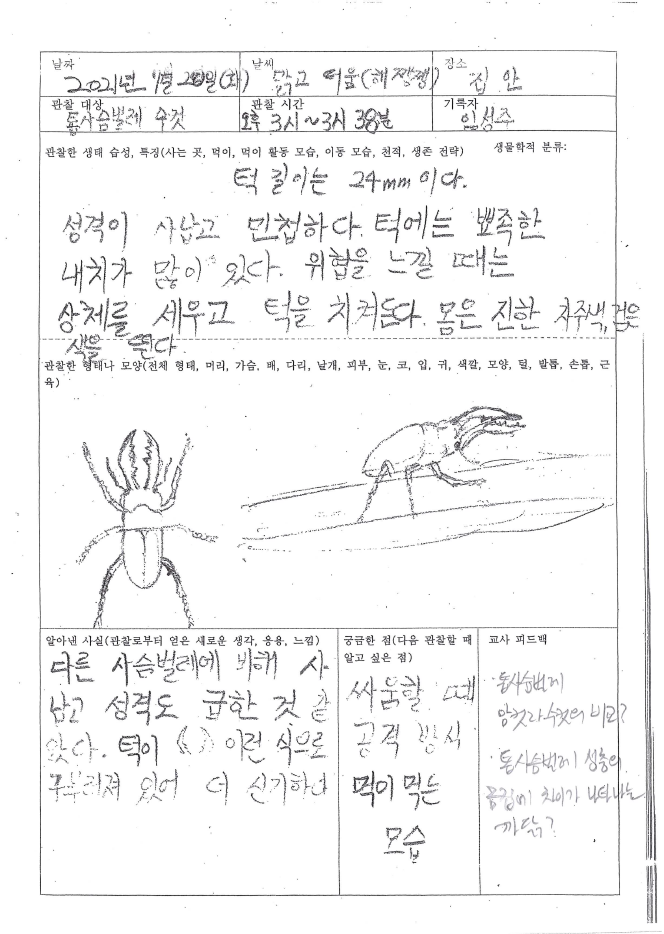 날짜 2021년 7월 20일(화) 날씨 맑고 더움(해쨍쨍) 장소 집 안
관찰 대상 톱사슴벌레 수컷 관찰 시간 오후 3시~3시 38분 기록자 임성주
관찰한 생태 습성, 특징(사는 곳, 먹이, 먹이 활동 모습, 이동 모습, 천적, 생존 전략) 생물학적 분류:
턱 길이는 24mm이다.
성격이 사납고 민첩하다. 턱에는 뾰족한
내치가 많이 있다. 위협을 느낄 때는
상체를 세우고 턱을 치켜든다. 몸은 진한 자주색, 검은
색을 띈다.
관찰한 형태나 모양(전체 형태, 머리, 가슴, 배, 다리, 날개, 피부, 눈, 코, 입, 귀, 색깔, 모양, 털, 발톱, 손톱, 근
육)
알아낸 사실(관찰로부터 얻은 새로운 생각, 응용, 느낌)
다른 사슴벌레에 비해 사
납고 성격도 급한 것 같
았다. 턱이 이런 식으로
구부러져 있어 더 신기하다
궁금한 점(다음 관찰할 때
알고 싶은 점)
싸움할 때
공격 방식
먹이 먹는
모습
교사 피드백
·톱사슴벌레
암컷과 수컷의 비교?
·톱사슴벌레 성충의
몸집에 차이가 나타나는
까닭?